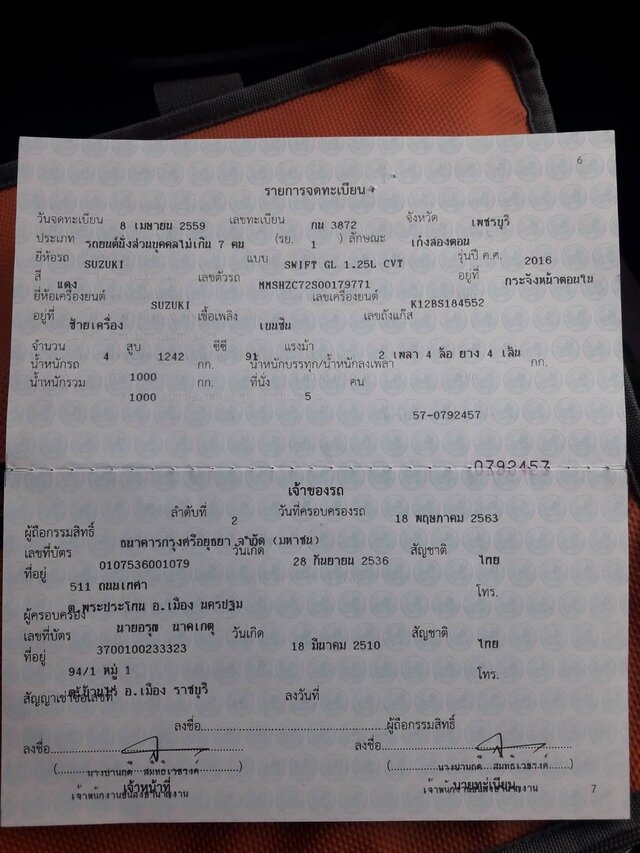 6
รายการจดทะเบียน
วันจดทะเบียน 8 เมษายน 2559 เลขทะเบียน กน 3872 จังหวัด เพชรบุรี
ประเภท รถยนต์นั่งส่วนบุคคลไม่เกิน 7 คน (รย. 1 ) ลักษณะ เก๋งสองตอน
ยี่ห้อรถ SUZUKI แบบ SWIFT GL 1.25L CVT รุ่นปี ค.ศ. 2016
สี แดง เลขตัวรถ MMSHZC72S00179771 อยู่ที่ กระจังหน้าตอนใน
ยี่ห้อเครื่องยนต์ SUZUKI เลขเครื่องยนต์ K12BS184552
อยู่ที่ ซ้ายเครื่อง เชื้อเพลิง เบนซิน เลขถังแก๊ส
จำนวน 4 สูบ 1242 ซีซี 91 แรงม้า 2 เพลา 4 ล้อ ยาง 4 เส้น
น้ำหนักรถ 1000 กก. น้ำหนักบรรทุก/น้ำหนักลงเพลา กก.
น้ำหนักรวม 1000 กก. ที่นั่ง 5 คน
57-0792457
0792457
เจ้าของรถ
ลำดับที่ 2 วันที่ครอบครองรถ 18 พฤษภาคม 2563
ผู้ถือกรรมสิทธิ์ ธนาคารกรุงศรีอยุธยา จำกัด (มหาชน)
เลขที่บัตร 0107536001079 วันเกิด 28 กันยายน 2536 สัญชาติ ไทย
ที่อยู่ 511 ถนนเทศา โทร.
ต.พระประโทน อ.เมือง นครปฐม
ผู้ครอบครอง นายอรุณ นาคเกตุ
เลขที่บัตร 3700100233323 วันเกิด 18 มีนาคม 2510 สัญชาติ ไทย
ที่อยู่ 94/1 หมู่ 1 โทร.
อ.เมือง ราชบุรี
สัญญาเช่าซื้อเลขที่ ลงวันที่
ลงชื่อ ผู้ถือกรรมสิทธิ์
ลงชื่อ ลงชื่อ
เจ้าหน้าที่ นายทะเบียน
7